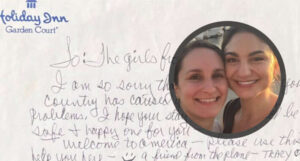 Holiday Inn
Garden Court®
To: The girls fr
I am so sorry th
country has caused
problems. I hope your sta
safe + happy one for you
welcome to america - please use th
help you here - a friend from the plane - TRACY